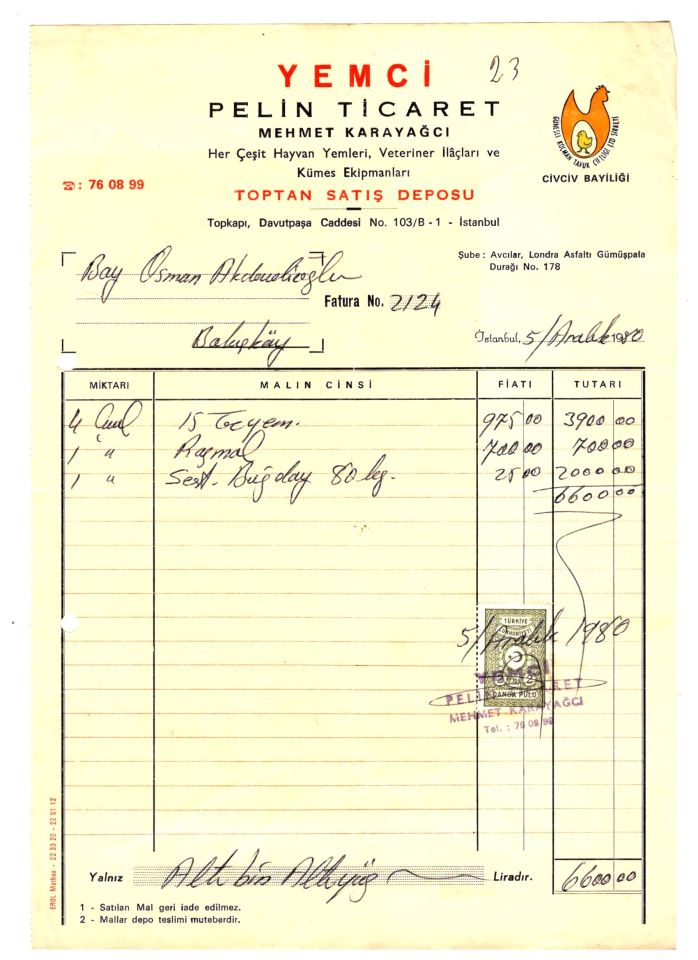 23
YEMCİ
PELİN TİCARET
MEHMET KARAYAĞCI
Her Çeşit Hayvan Yemleri, Veteriner İlâçları ve
Kümes Ekipmanları
TOPTAN SATIŞ DEPOSU
☎: 76 08 99
Topkapı, Davutpaşa Caddesi No. 103/B - 1 - İstanbul
GÜNEŞLİ KOÇMAN TAVUK ÇİFTLİĞİ LTD ŞİRKETİ
CİVCİV BAYİLİĞİ
Şube : Avcılar, Londra Asfaltı Gümüşpala
Durağı No. 178
Bay Osman
Fatura No. 2124
İstanbul, 5/Aralık 1980
MİKTARI MALIN CİNSİ FİATI TUTARI
4 15 975 00 3900 00
1 " 700 00 700 00
1 " Buğday 80 kg. 25 00 2000 00
6600 00
5/Aralık 1980
TÜRKİYE
CUMHURİYETİ
2 2
DAMGA PULU
YEMCİ
PELİN TİCARET
MEHMET KARAYAĞCI
Tel. : 76 08 99
Yalnız Altı bin Altıyüz Liradır. 6600 00
1 - Satılan Mal geri iade edilmez.
2 - Mallar depo teslimi muteberdir.
EROL Matbaa - 22 33 20 - 22 61 12